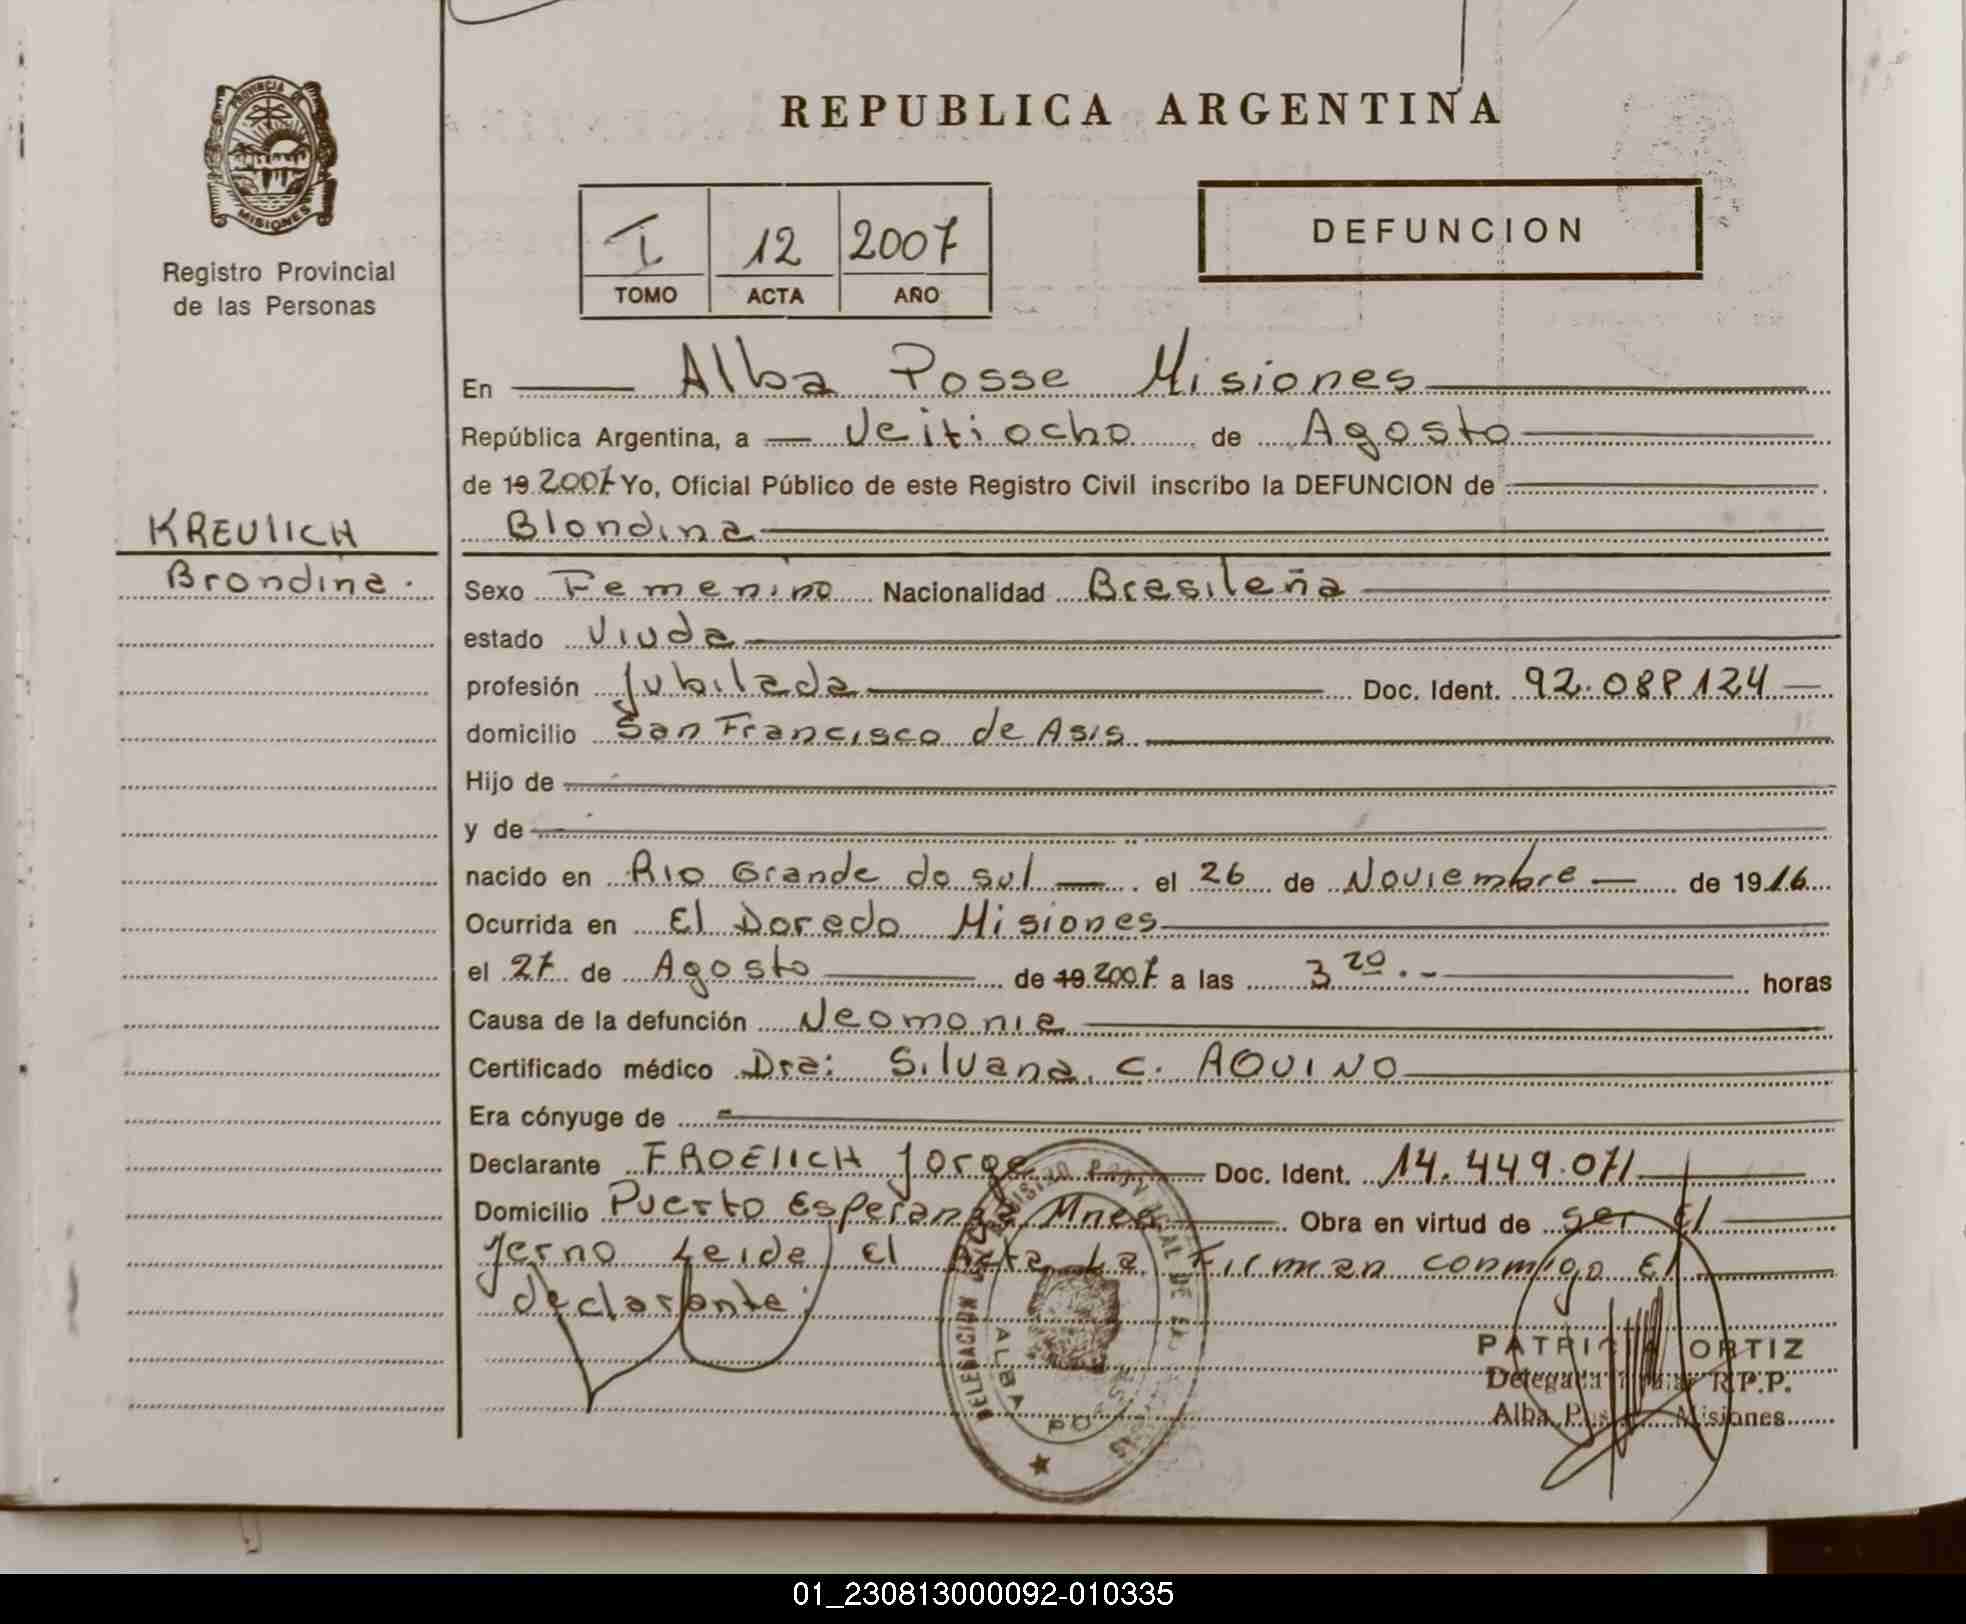 PROVINCIA DE
MISIONES
Registro Provincial
de las Personas
REPUBLICA ARGENTINA
I 12 2007
TOMO ACTA AÑO
DEFUNCION
En Alba Posse Misiones
República Argentina, a Veitiocho de Agosto
de 19 2007 Yo, Oficial Público de este Registro Civil inscribo la DEFUNCION de
KREUlICH
Blondina
Brondina.
Sexo Femenino Nacionalidad Brasileña
estado Viuda
profesión Jubilada Doc. Ident. 92.088124
domicilio San Francisco de Asis
Hijo de
y de
nacido en Rio Grande do sul el 26 de Noviembre de 1916
Ocurrida en El Dorado Misiones
el 27 de Agosto de 19 2007 a las 3 20 horas
Causa de la defunción Neomonia
Certificado médico Dra: Silvana. C. AQUINO
Era cónyuge de
Declarante FROElICH Jorge Doc. Ident. 14.449.071
Domicilio Puerto Esperanza Mnes Obra en virtud de ser El
Yerno Leida El Acta La Firman conmigo El
declarante:
DELEGACION
ALBA POSSE
PATRICIA ORTIZ
Delegada Titular R.P.P.
Alba Posse Misiones
01_230813000092-010335